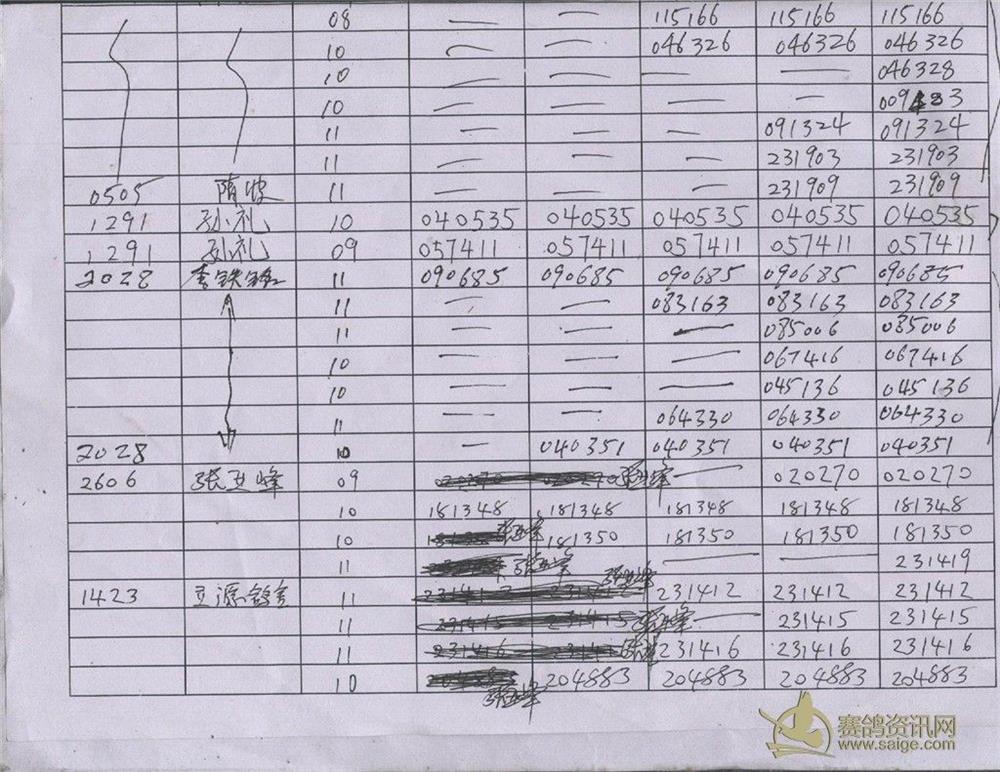 08 — — 115166 115166 115166
10 — — 046326 046326 046326
10 — — — — 046328
10 — — — —
11 — — — 091324 091324
11 — — — 231903 231903
0505 隋波 11 — — — 231909 231909
1291 孙礼 10 040535 040535 040535 040535 040535
1291 孙礼 09 057411 057411 057411 057411 057411
2028 李铁 11 090685 090685 090685 090685 090685
11 — — 083163 083163 083163
11 — — — 085006 085006
10 — — — 067416 067416
10 — — — 045136 045136
11 — — 064330 064330 064330
2028 10 — 040351 040351 040351 040351
2606 张亚峰 09 — 020270 020270
10 181348 181348 181348 181348 181348
10 181350 181350 181350 181350
11 — — 231419
1423 豆源鸽舍 11 231412 231412 231412 231412 231412
11 231415 231415 — 231415 231415
11 231416 231416 231416 231416 231416
10 204883 204883 204883 204883
赛鸽资讯网
www.saige.com